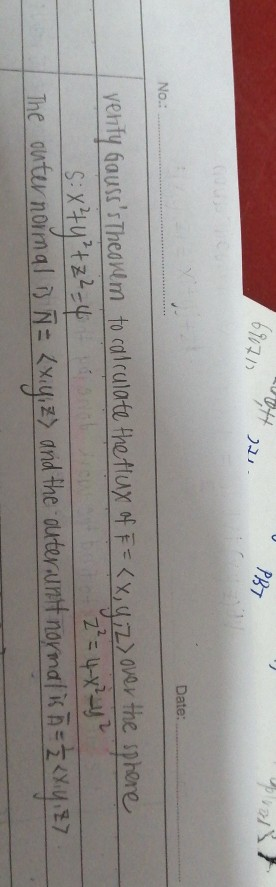 No.:
Date:
verify Gauss's Theorem to calculate the flux of F̄ = <x, y, z> over the sphere
S: x²+y²+z²=4
z²=4-x²-y²
The outer normal is N̄ = <x,y,z> and the outer unit normal is n̄ = ½<x,y,z>.
PBT